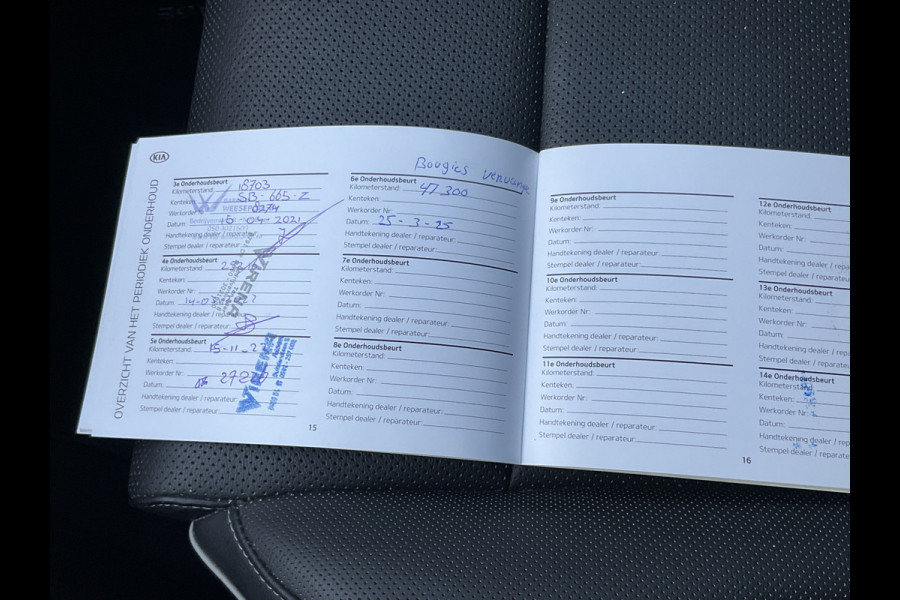 KIA
OVERZICHT VAN HET PERIODIEK ONDERHOUD
3e Onderhoudsbeurt
Kilometerstand: 15703
Kenteken: SB-665-Z
Werkorder 0274
Datum: 15-04-2021
Handtekening dealer / reparateur:
Stempel dealer / reparateur:
4e Onderhoudsbeurt
Kilometerstand:
Kenteken:
Werkorder Nr:
Datum: 14-03
Handtekening dealer / reparateur:
Stempel dealer / reparateur:
5e Onderhoudsbeurt
Kilometerstand: 15-11-23
Kenteken:
Werkorder Nr:
Datum:
Handtekening dealer / reparateur:
Stempel dealer / reparateur:
15
Bougies vervangen
6e Onderhoudsbeurt
Kilometerstand: 47.300
Kenteken:
Werkorder Nr:
Datum: 25-3-25
Handtekening dealer / reparateur:
Stempel dealer / reparateur:
7e Onderhoudsbeurt
Kilometerstand:
Kenteken:
Werkorder Nr:
Datum:
Handtekening dealer / reparateur:
Stempel dealer / reparateur:
8e Onderhoudsbeurt
Kilometerstand:
Kenteken:
Werkorder Nr:
Datum:
Handtekening dealer / reparateur:
Stempel dealer / reparateur:
9e Onderhoudsbeurt
Kilometerstand:
Kenteken:
Werkorder Nr:
Datum:
Handtekening dealer / reparateur:
Stempel dealer / reparateur:
10e Onderhoudsbeurt
Kilometerstand:
Kenteken:
Werkorder Nr:
Datum:
Handtekening dealer / reparateur:
Stempel dealer / reparateur:
11e Onderhoudsbeurt
Kilometerstand:
Kenteken:
Werkorder Nr:
Datum:
Handtekening dealer / reparateur:
Stempel dealer / reparateur:
16
12e Onderhoudsbeurt
Kilometerstand:
Kenteken:
Werkorder Nr:
Datum:
Handtekening dealer / repa
Stempel dealer / reparate
13e Onderhoudsbeurt
Kilometerstand:
Kenteken:
Werkorder Nr:
Datum:
Handtekening dealer / re
Stempel dealer / reparate
14e Onderhoudsbeurt
Kilometerstand:
Kenteken:
Werkorder Nr:
Datum:
Handtekening dealer / re
Stempel dealer / reparate